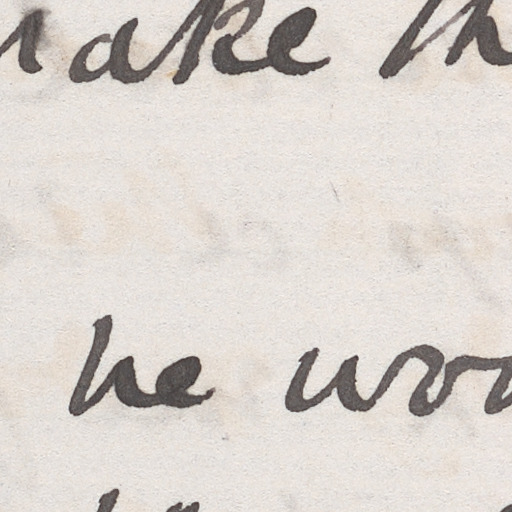 make th
he wo